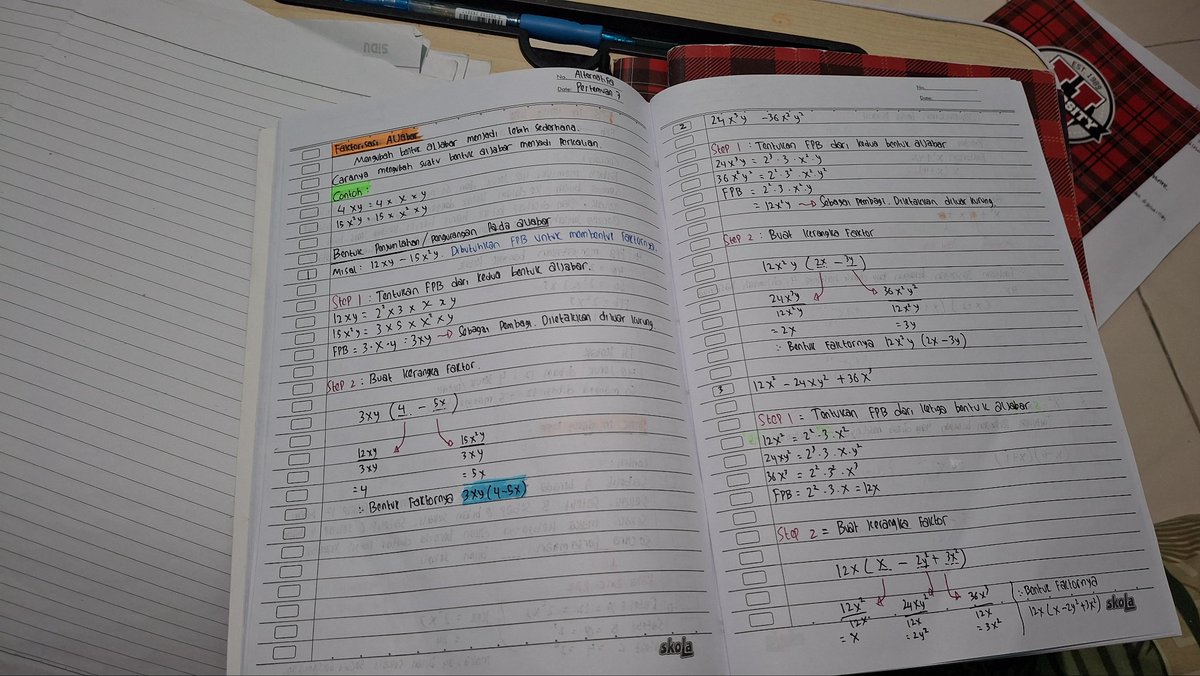 No. Alternatifa
Date: Pertemuan 7
Faktorisasi Aljabar
Mengubah bentuk aljabar menjadi lebih sederhana.
Caranya mengubah suatu bentuk aljabar menjadi Perkalian
Contoh :
4 xy = 4 x x x y
15 x²y = 15 x x² x y
Bentuk Penjumlahan / Pengurangan Pada aljabar
1 Misal : 12 xy - 15 x²y. Dibutuhkan FPB untuk membentuk faktornya.
Step 1 : Tentukan FPB dari kedua bentuk aljabar.
12 xy = 2² x 3 x x x y
15 x²y = 3 x 5 x x² x y
FPB = 3 . x . y = 3xy → Sebagai Pembagi. Diletakkan diluar kurung
Step 2 : Buat kerangka Faktor.
3xy ( 4 - 5x )
12xy 15x²y
3xy 3xy
= 4 = 5x
∴ Bentuk Faktornya 3xy (4-5x)
skola
No.
Date:
2 24 x³y - 36 x²y²
Step 1 : Tentukan FPB dari kedua bentuk aljabar
24 x³y = 2³ . 3 . x³ . y
36 x²y² = 2² . 3² . x² . y²
FPB = 2² . 3 . x² . y
= 12x²y → Sebagai Pembagi. Diletakkan diluar kurung.
Step 2 : Buat kerangka Faktor
12x²y ( 2x - 3y )
24x³y 36x²y²
12x²y 12x²y
= 2x = 3y
∴ Bentuk Faktornya 12x²y (2x-3y)
3 12x² - 24xy² + 36x³
Step 1 = Tentukan FPB dari ketiga bentuk aljabar
12x² = 2² . 3 . x²
24xy² = 2³ . 3 . x . y²
36x³ = 2² . 3² . x³
FPB = 2² . 3 . x = 12x
Step 2 = Buat kerangka Faktor
12x ( x - 2y² + 3x² )
12x² 24xy² 36x³ ∴ Bentuk Faktornya
12x 12x 12x 12x (x-2y²+3x²)
= x = 2y² = 3x²
skola
EST 1989